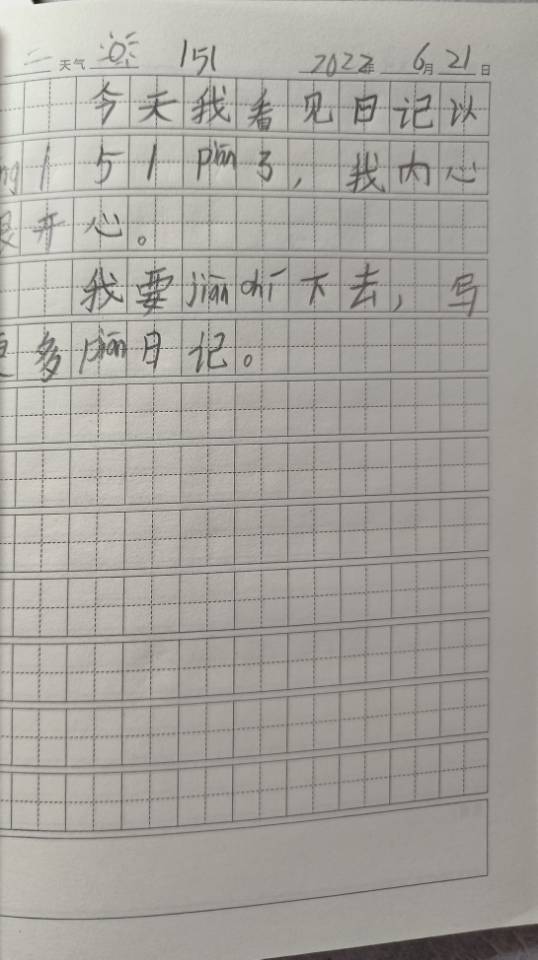 二 天气 151 2022年 6月21日
今天我看见日记以
ng 151 piān了，我内心
很开心。
我要jiān chí下去，写
更多piān日记。